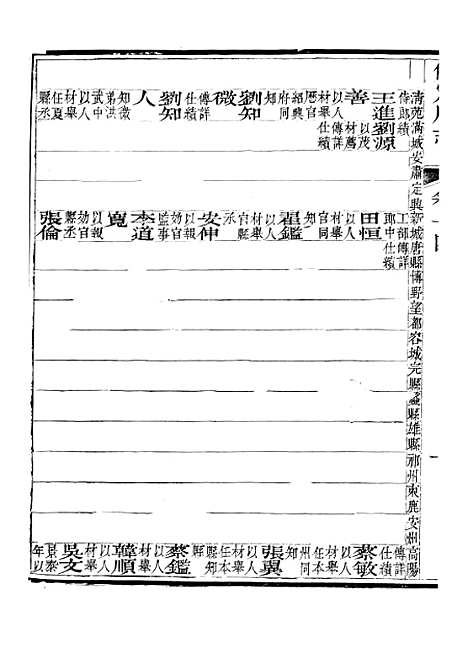 清苑滿城安肅定興新城唐縣博野望都容城完縣蠡縣雄縣祁州束鹿安州高陽
侍郎績
工部傳詳
郎中仕績
傳詳
仕績
王進
劉源
善
以茂
材薦
以人傳詳
材舉仕績
田恒
以人
材舉
蔡敏
以人
材舉
歷官
紹興
府同
知
官同
知
任本
州同
知
劉知
微
傳詳
仕績
翟鑑
以人
材舉
官縣
丞
張翼
以人
材舉
任本
縣知
縣
劉知
人
知微
弟洪
武中
以人
材舉
任夏
縣丞
安仲
効官
監事
李道
寬
以報
効官
縣丞
張倫
蔡鑑
以人
材舉
韓順
以人
材舉
吳文
景泰
年以